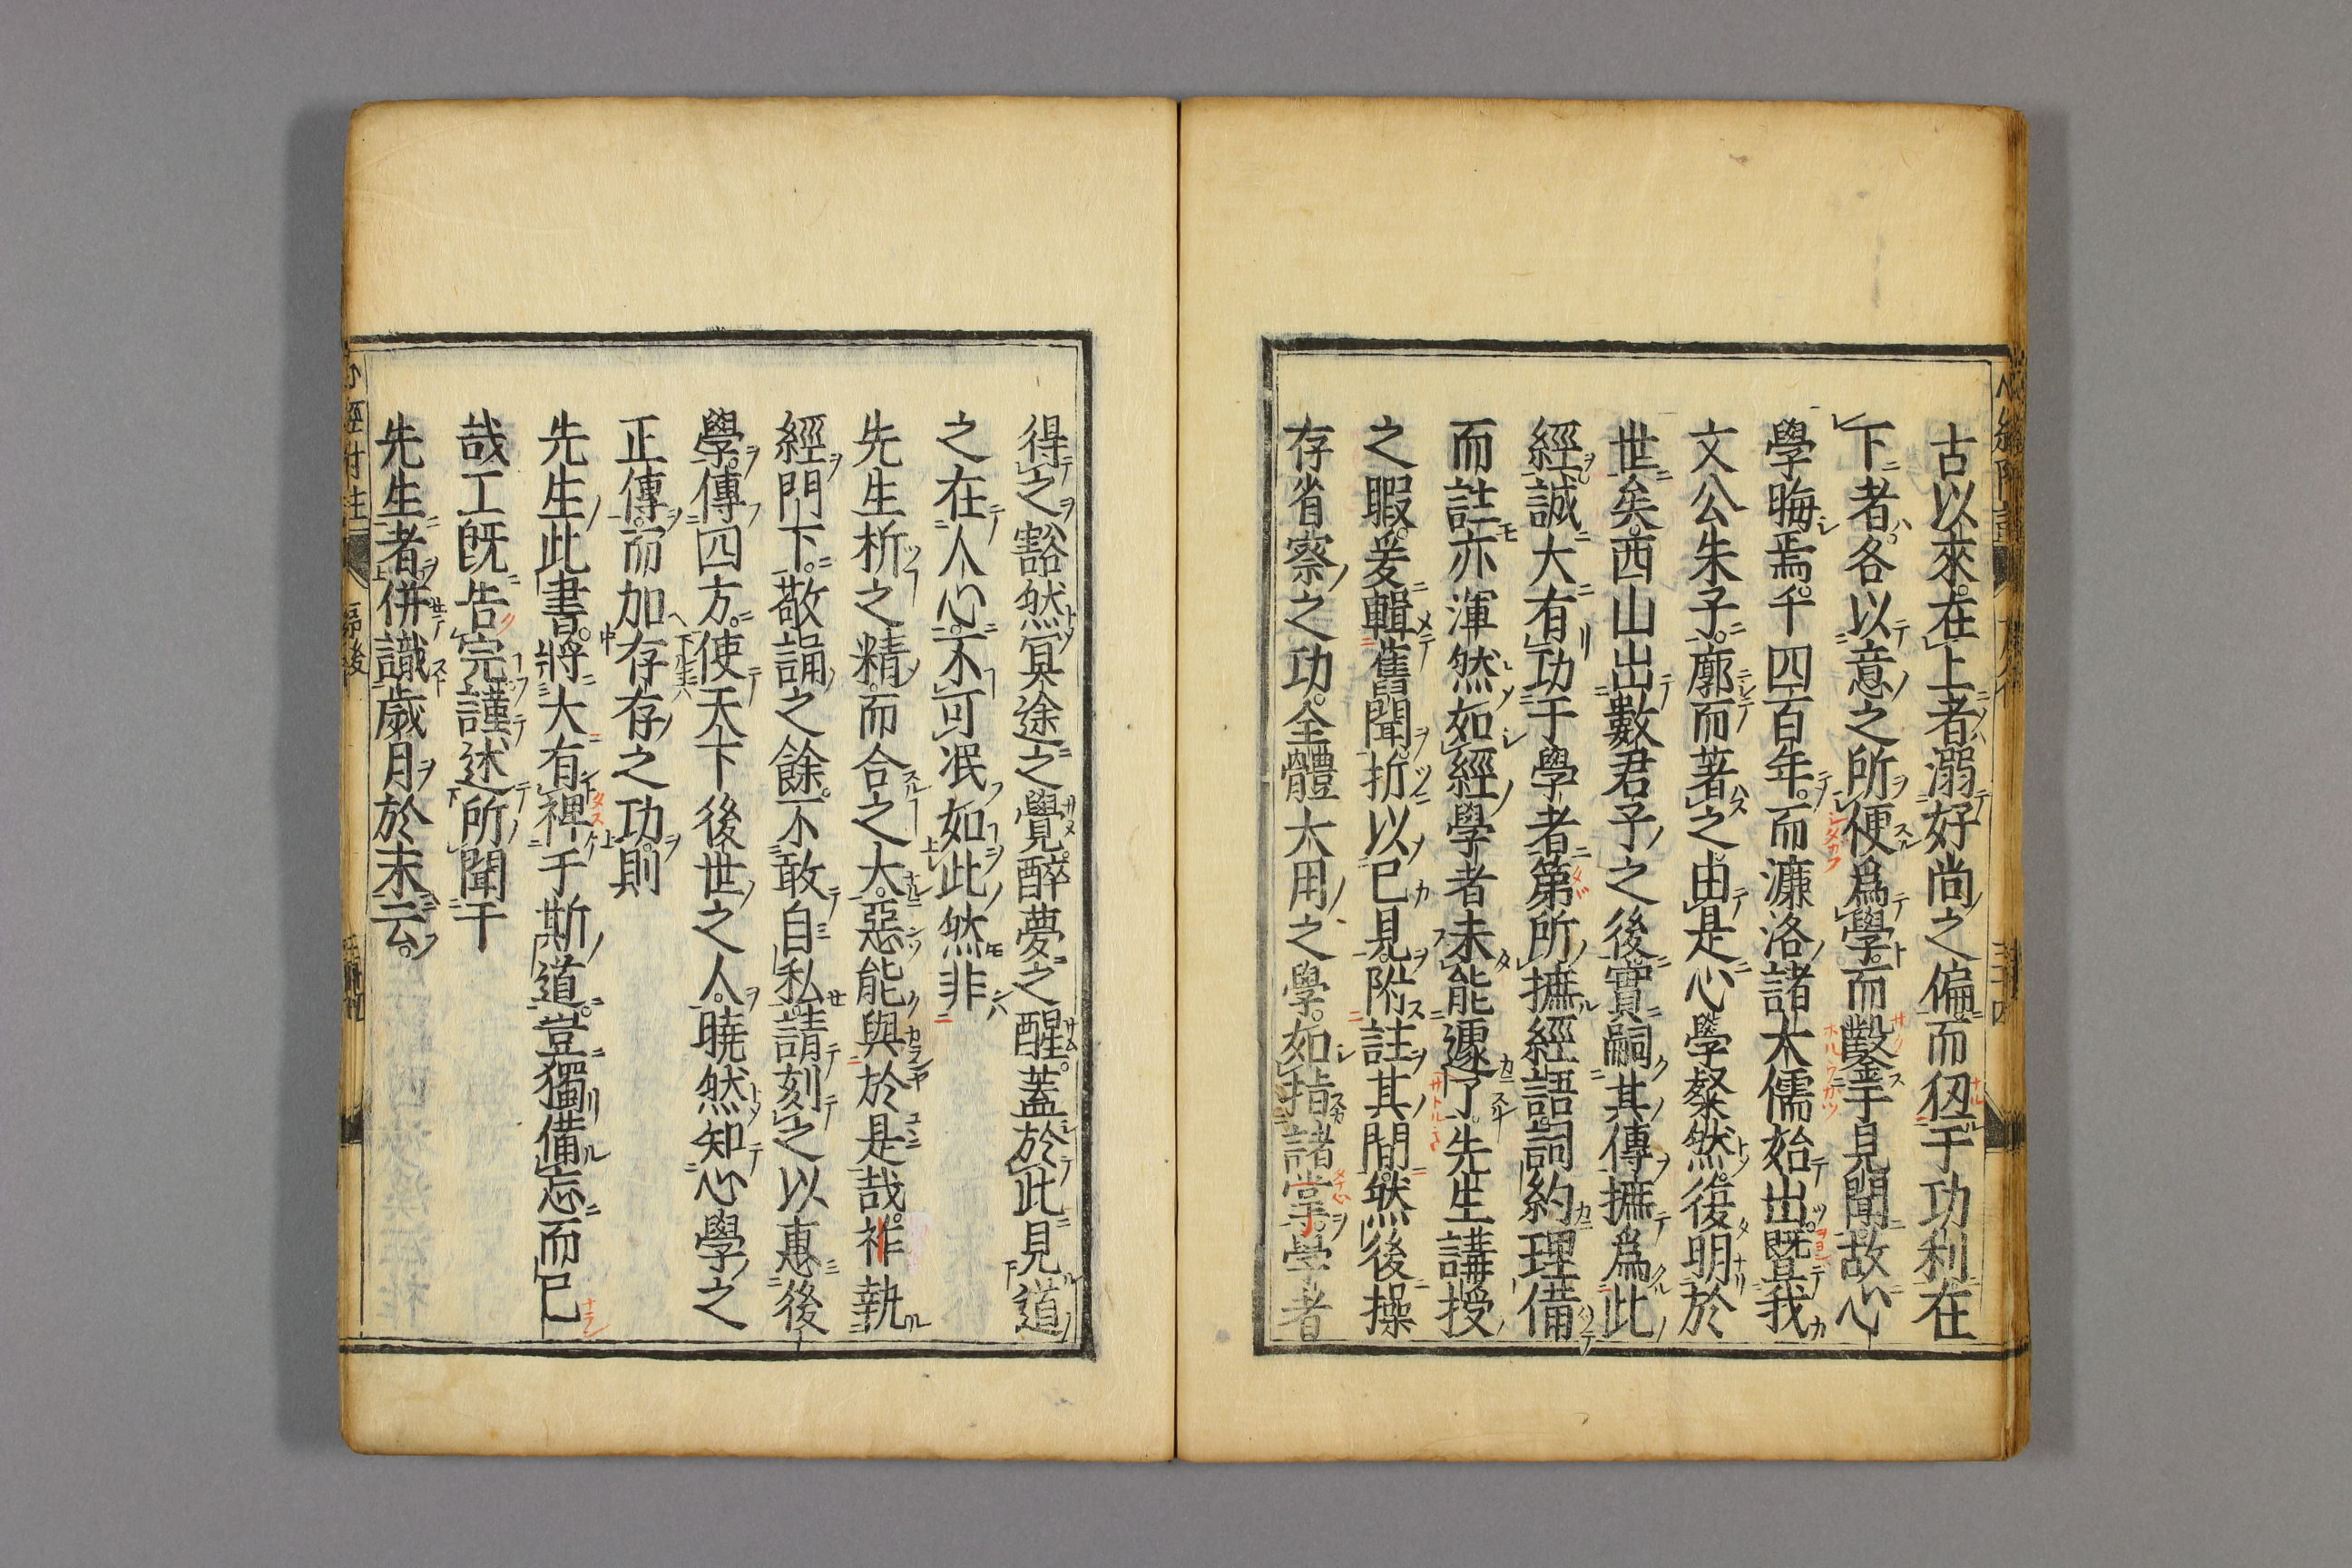 古以來在上者溺好尚之偏而在
下者各以意之所便爲學而鑿乎見聞故心
學晦焉千四百年而濂洛諸大儒始出曁我
文公朱子廓而著之由是心學粲然復明於
世矣西山出數君子之後實嗣其傳撫爲此
經誠大有功于學者第所撫經語詞約理備
而註亦渾然如經學者未能遽了先生講授
之暇爰輯舊聞折以已見附註其間然後操
存省察之功全體大用之學如指諸掌学者
得之豁然冥途之覺醉夢之醒蓋於此見道
之在人心不可泯如此然非
先生析之精而合之大惡能與於是哉祚執
經門下敬誦之餘不敢自私請刻之以惠後
學傳四方使天下後世之人曉然知心學之
正傳而加存存之功則
先生此書將大有裨于斯道豈獨備忘而已
哉工既告完謹述所聞于
先生者併識歲月於末云